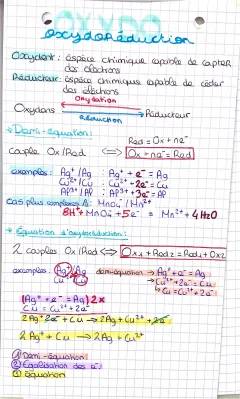 OXYDO
oxydoréduction
Oxydant: espèce chimique capable de capter
des électrons
Réducteur: espèce chimique capable de céder
des électrons
Oxydation
Oxydans Réducteur
Réduction
→ Demi-équation:
Red = Ox + ne⁻
Couple Ox/Red ⟺ Ox + ne⁻ = Red
exemples: Ag⁺/Ag : Ag⁺ + e⁻ = Ag
Cu²⁺/Cu : Cu²⁺ + 2e⁻ = Cu
Al³⁺/Al : Al³⁺ + 3e⁻ = Al
Cas plus complexes: MnO₄⁻/Mn²⁺
8H⁺ MnO₄ + 5e⁻ = Mn²⁺ + 4H₂O
→ Equation d'oxydoréduction:
2 couples Ox/Red ⟺ Ox₁ + Red₂ = Red₁ + Ox₂
exemples: Ag⁺/Ag demi-équation → Ag⁺ + e⁻ = Ag
Cu²⁺/Cu → Cu²⁺ + 2e⁻ = Cu
↳ Cu = Cu²⁺ + 2e⁻
(Ag⁺ + e⁻ = Ag) × 2
Cu = Cu²⁺ + 2e⁻
2Ag⁺ 2e⁻ + Cu → 2Ag + Cu²⁺ + 2e⁻
2Ag⁺ + Cu → 2Ag + Cu²⁺
① Demi-équation
② Egalisation des e⁻
③ équation